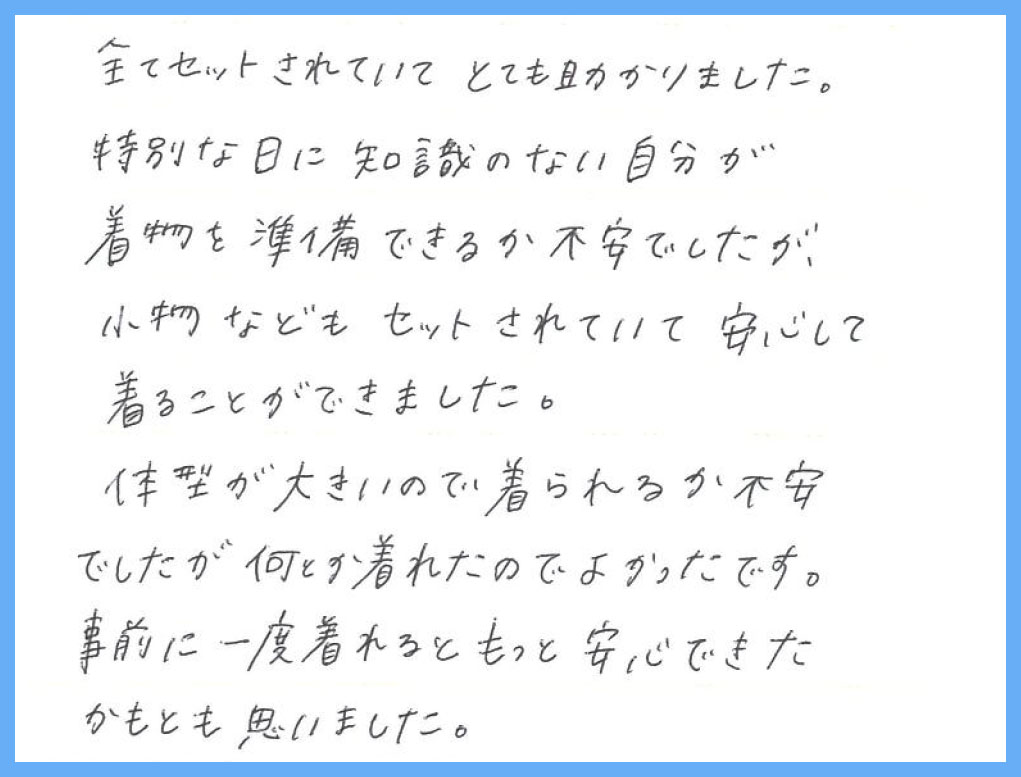 全てセットされていて とても助かりました。
特別な日に 知識のない自分が
着物を準備できるか不安でしたが、
小物などもセットされていて安心して
着ることができました。
体型が大きいので着られるか不安
でしたが何とか着れたのでよかったです。
事前に一度着れるともっと安心できた
かもとも思いました。